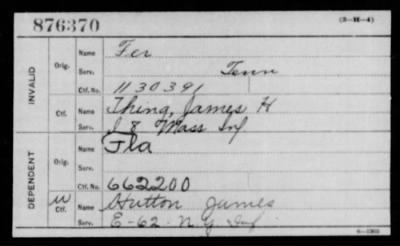 876370
(3-H-4)
INVALID
Orig.
Name Fer
Serv. Tenn
Ctf. No. 1130391
Ctf. Name Thing, James H
Serv. I 8 Mass Inf
DEPENDENT
Orig.
Name Fla
Serv.
Ctf. No. 662200
W Ctf. Name Hutton James
Serv. E-62 N.Y. Inf.